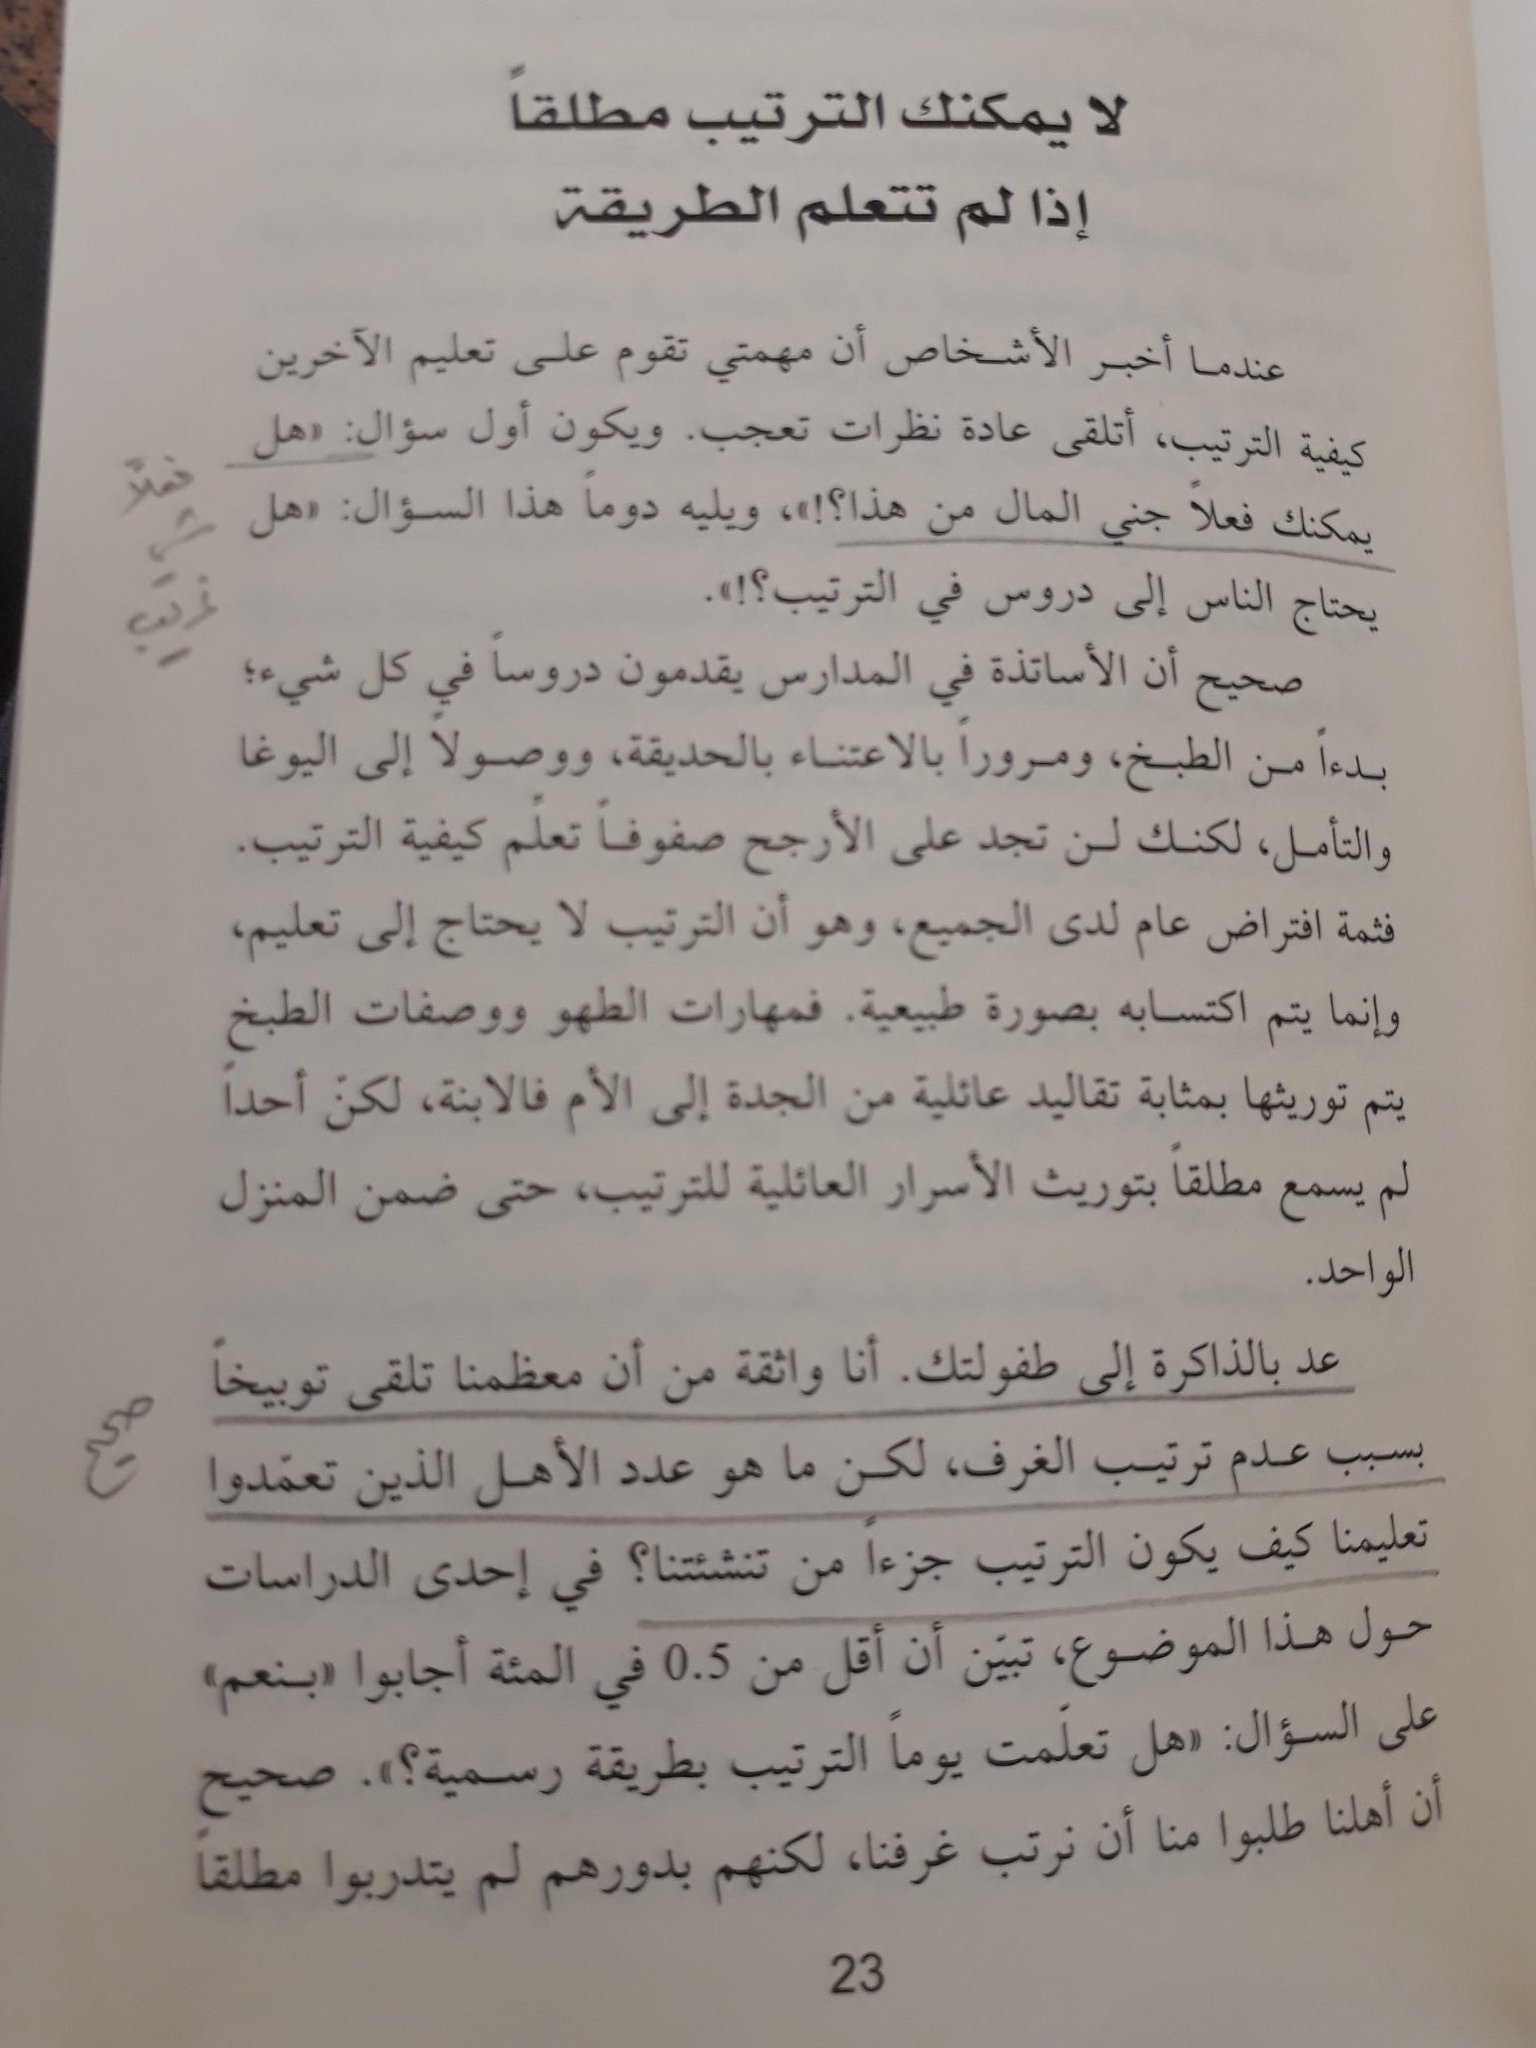 لا يمكنك الترتيب مطلقاً
إذا لم تتعلم الطريقة
عندما أخبر الأشخاص أن مهمتي تقوم على تعليم الآخرين
كيفية الترتيب، أتلقى عادة نظرات تعجب. ويكون أول سؤال: «هل
يمكنك فعلاً جني المال من هذا؟!»، ويليه دوماً هذا السؤال: «هل
يحتاج الناس إلى دروس في الترتيب؟!».
فعلاً
شي
غريب
صحيح أن الأساتذة في المدارس يقدمون دروساً في كل شيء؛
بدءاً من الطبخ، ومروراً بالاعتناء بالحديقة، ووصولاً إلى اليوغا
والتأمل، لكنك لن تجد على الأرجح صفوفاً تعلّم كيفية الترتيب.
فثمة افتراض عام لدى الجميع، وهو أن الترتيب لا يحتاج إلى تعليم،
وإنما يتم اكتسابه بصورة طبيعية. فمهارات الطهو ووصفات الطبخ
يتم توريثها بمثابة تقاليد عائلية من الجدة إلى الأم فالابنة، لكنّ أحداً
لم يسمع مطلقاً بتوريث الأسرار العائلية للترتيب، حتى ضمن المنزل
الواحد.
عد بالذاكرة إلى طفولتك. أنا واثقة من أن معظمنا تلقى توبيخاً
بسبب عدم ترتيب الغرف، لكن ما هو عدد الأهل الذين تعمّدوا
تعليمنا كيف يكون الترتيب جزءاً من تنشئتنا؟ في إحدى الدراسات
حول هذا الموضوع، تبيّن أن أقل من 0.5 في المئة أجابوا «بنعم»
على السؤال: «هل تعلّمت يوماً الترتيب بطريقة رسمية؟». صحيح
أن أهلنا طلبوا منا أن نرتب غرفنا، لكنهم بدورهم لم يتدربوا مطلقاً
صحيح
23